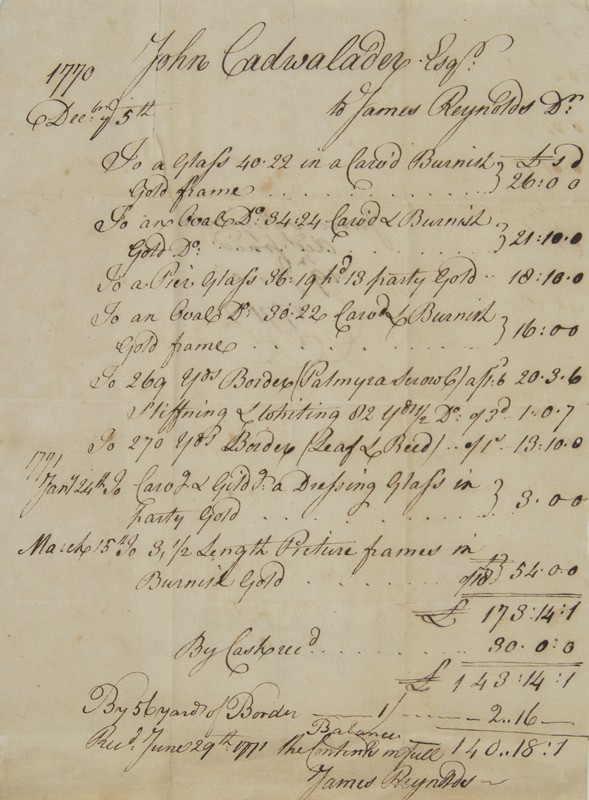 John Cadwalader Esqr.
1770
Decbr. ye 5th to James Reynolds Dr.
To a Glass 40.22 in a Carv'd Burnish £ s d
Gold frame 26:0 0
To an Oval Do. 34:24 Carv'd & Burnish
Gold Do. 21:10.0
To a Pier Glass 36:19 hd 13 party Gold 18:10.0
To an Oval Do. 30.22 Carv'd & Burnish
Gold frame 16:00
To 269 Yds Border (Palmyra Scrow) 20.3.6
Stiffning & Whiting 82 Yds 1/2 Do. @ 3d 1.0.7
To 270 Yds Border (Leaf & Reed) @ 1s 13:10.0
1771
Jany 24th To Carvg & Gildg a Dressing Glass in
party Gold 3.00
March 15th To 3, 1/2 Length Picture frames in
Burnish Gold @ £18 54.0.0
£ 173:14:1
By Cash recd 30.0:0
£ 143:14:1
By 56 yards of Border 1/ 2..16
Balance
Recd. June 29th 1771 the Contents in full 140..18:1
James Reynolds